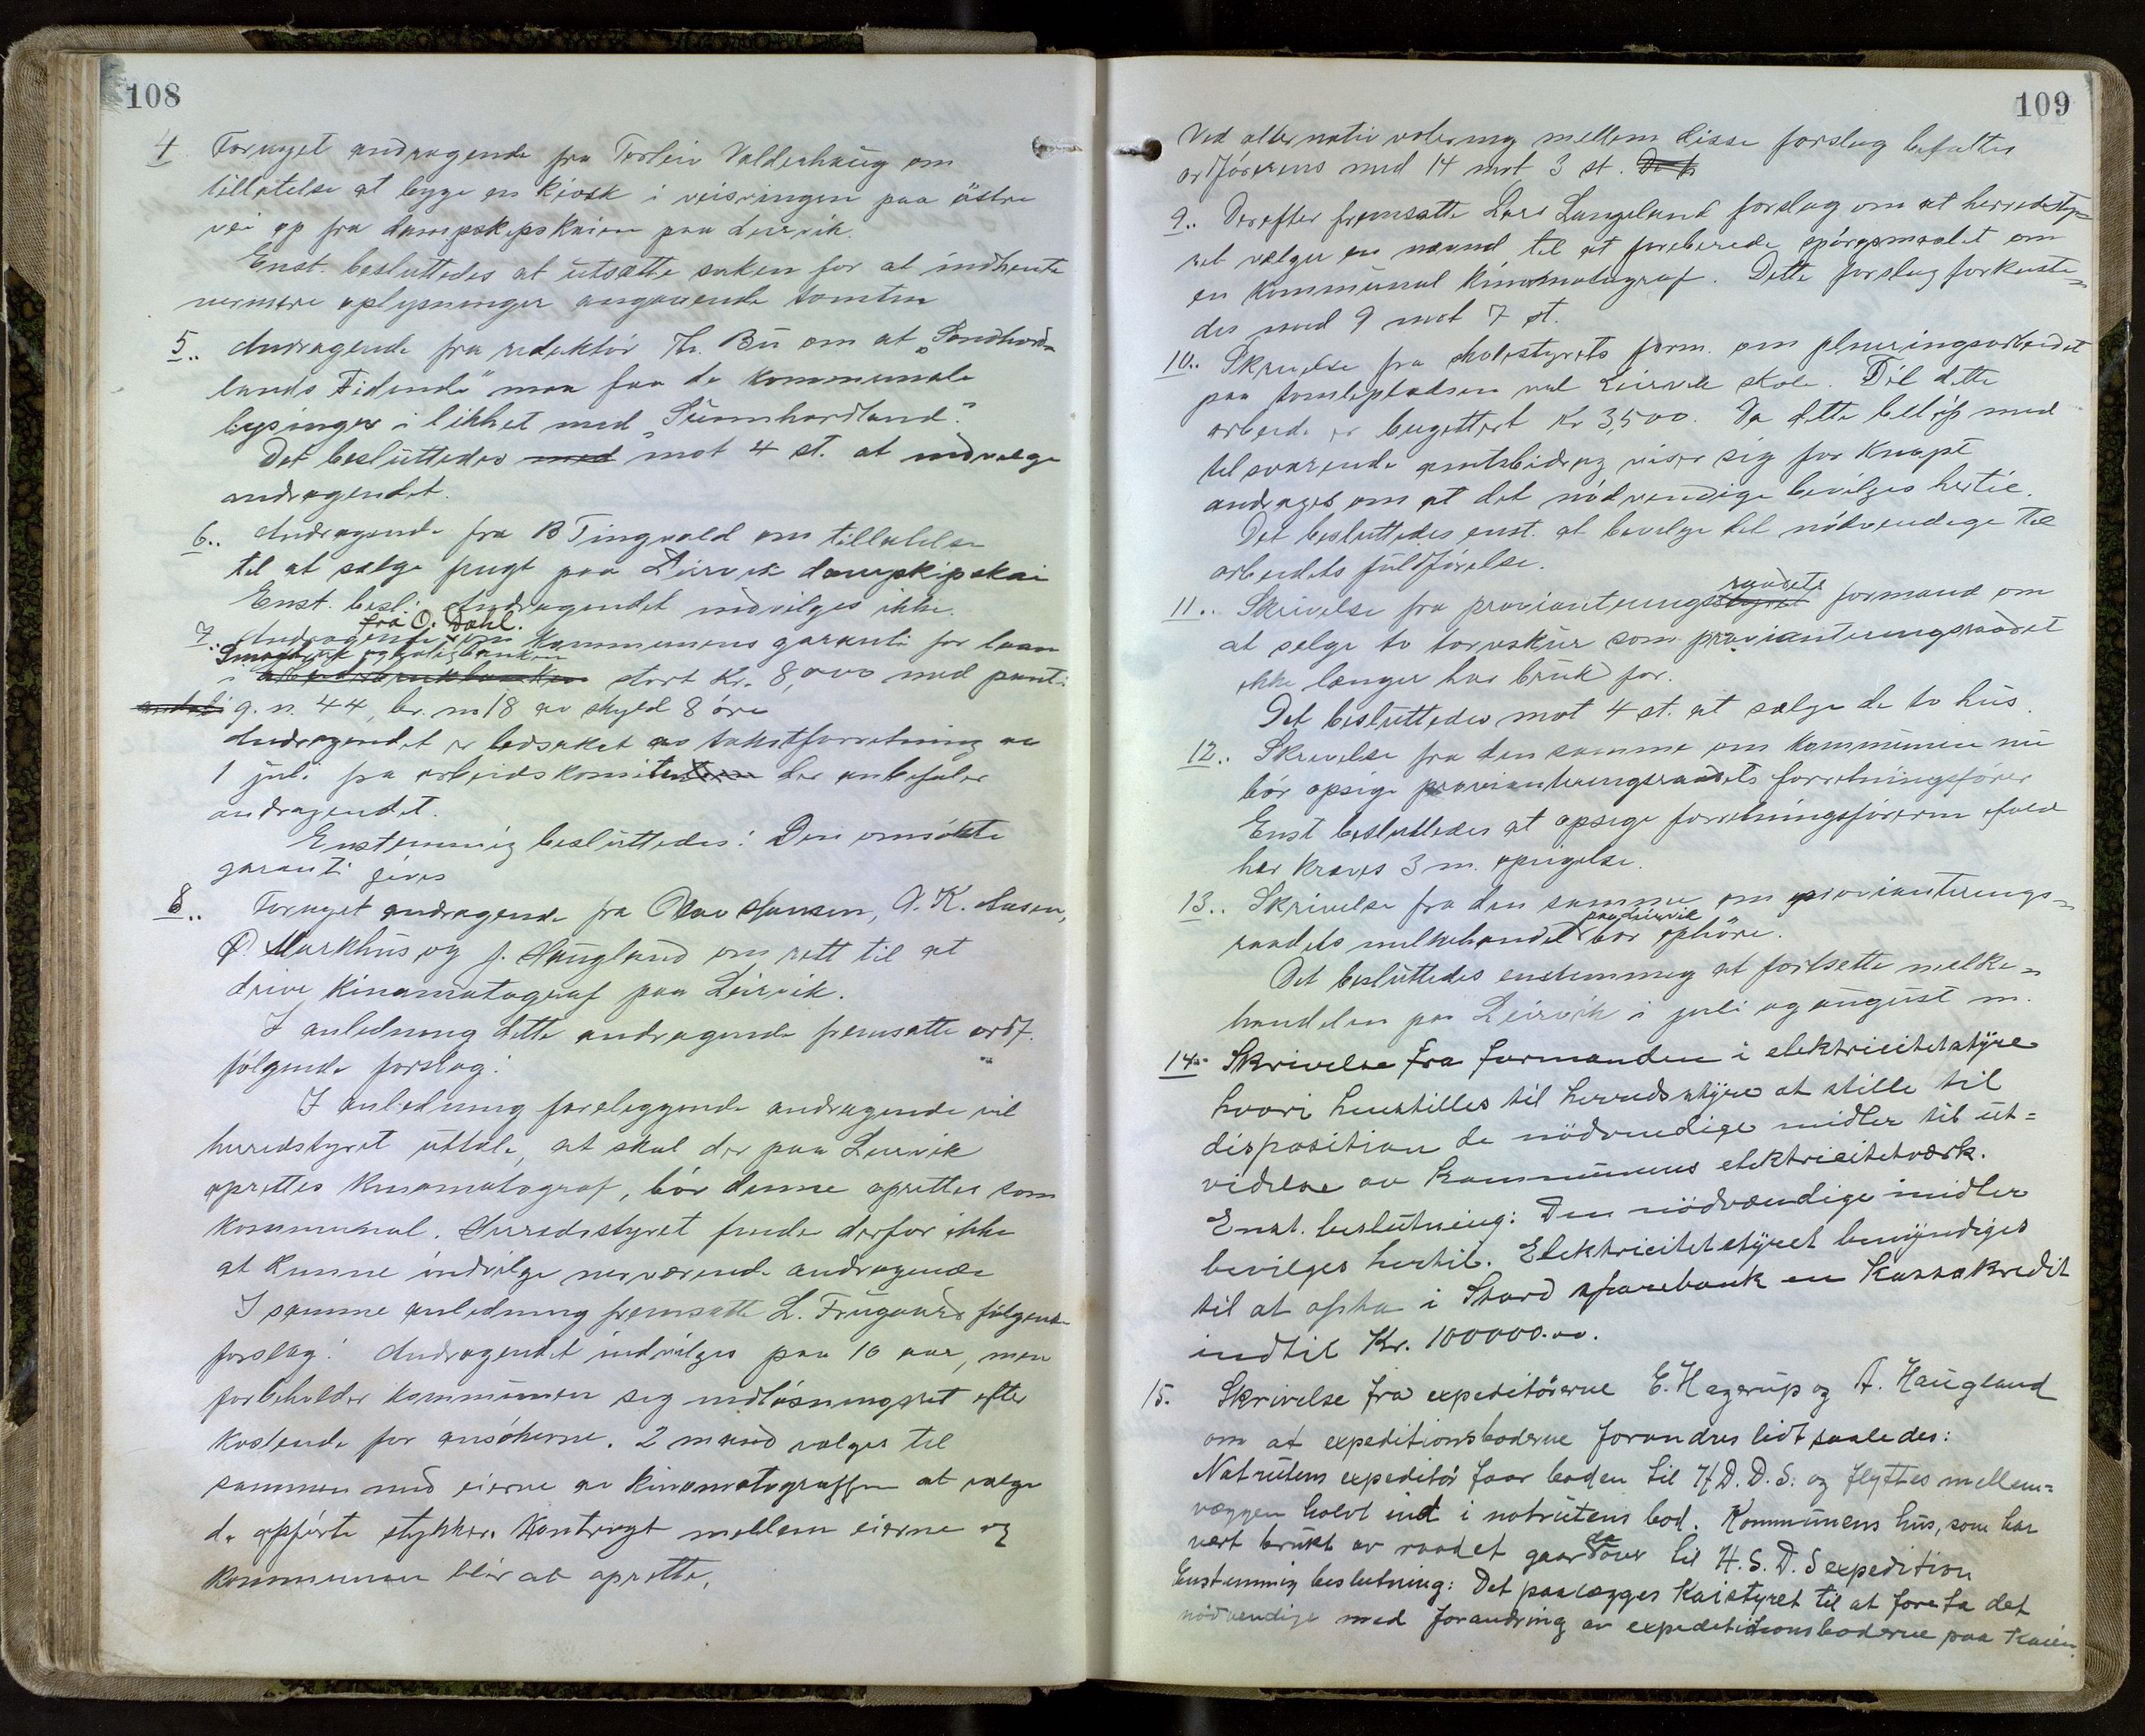 108
4 Foraget andragende fra Torleiv Valderhaug om
tillatelse at bygge en kiosk i veisvingen paa östre
vei op fra dampskipskaien paa Leirvik.
Enst. besluttedes at utsætte saken for at indhente
nermere oplysninger angaaende tomten
5.. Andragende fra redaktör Th. Bu om at „Söndhord-
lands Tidende" maa faa de kommunale
lysinger i likhet med „Sunnhordland".
Det besluttedes med mot 4 st. at indvilge
andragendet.
6.. Andragende fra B Tingvold om tillatelse
til at sælge frugt paa Leirvik dampskipskai
Enst. besl: Andragendet indvilges ikke.
fra O. Dahl.
7.. Andragende om kommunens garanti for laan
Smaabruk og boligbanken
i stort Kr. 8,000 med pant i
g. n. 44, br. no 18 av skyld 8 öre
Andragendet er ledsaket av takstforretning av
1 juli fra arbeidskomiteen der anbefaler
andragendet.
Enstemmig besluttedes: Den omsökte
garanti gives
8.. Foraget andragende fra Olav Hansen, A. K. Aasen,
O. Markhus og J. Haugland om rett til at
drive kinamatograf paa Leirvik.
I anledning dette andragende fremsatte ordf.
fölgende forslag:
I anledning foreleggende andragende vil
herredstyret uttale, at skal der paa Leirvik
oprettes kinamatograf, bör denne oprettes som
kommunal. Herredstyret finder derfor ikke
at kunne indvilge nerværende andragende
I samme anledning fremsatte L. Frugaard fölgende
forslag: Andragendet indvilges paa 10 aar, men
forbeholder kommunen sig indlösningsret efter
kostende for ansökerne. 2 mænd valges til
sammen med eierne av kinamatograffen at velge
de opförte stykker. Kontragt mellem eierne og
kommunen blir at oprette.
109
Ved alternativ votering mellem disse forslag befattes
ordförerens med 14 mot 3 st. Det b
9.. Derefter fremsatte Lars Langeland forslag om at herredsty-
ret velger en nevnd til at foreberede spörgsmaalet om
en kommunal kinamatograf. Dette forslag forkaste-
des med 9 mot 7 st.
10.. Skrivelse fra skolestyrets form. om planeringsarbeidet
paa tomtepladsen ved Leirvik skole. Til dette
arbeide er bugettert Kr 3,500. Da dette belöp med
tilsvarende amtsbidrag viser sig for knapt
andrages om at det nödvendige bevilges hertil.
Det besluttedes enst. at bevilge det nödvendige til
arbeidets fuldförelse.
raadets
11.. Skrivelse fra provianteringsstyret formand om
at selge to torvskur som provianteringsraadet
ikke længer har bruk for.
Det besluttedes mot 4 st. at sælge de to hus.
12.. Skrivelse fra den samme om kommunen nu
bör opsige provianteringsraadets forretningsförer
Enst besluttedes at opsige forretningsföreren ifald
her kræves 3 m. opsigelse.
13.. Skrivelse fra den samme om provianterings-
paa Leirvik
raadets melkehandel bör ophöre.
Det besluttedes enstemmig at fortsette melke-
handelen paa Leirvik i juli og august m.
14.. Skrivelse fra formanden i elektricitetstyre
hvori henstilles til herredsstyre at stille til
disposition de nödvendige midler til ut-
videlse av kommunens elektricitetværk.
Enst. beslutning: Den nödvendige midler
bevilges hertil. Elektricitetstyret bemyndiges
til at opta i Stord sparebank en Kassakredit
indtil Kr. 100000.00.
15. Skrivelse fra expeditörerne E. Hagerup og A. Haugland
om at expeditionsboderne forandres lidt saaledes:
Natrutens expeditör faar boden til H.D.D.S. og flyttes mellem-
væggen halvt ind i natrutens bod. Kommunens hus, som har
da
vært brukt av raadet gaar over til H.S.D.S expedition
Enstemmig beslutning: Det paalægges Kaistyret til at foreta det
nödvendige med forandring av expeditionsboderne paa kaien.